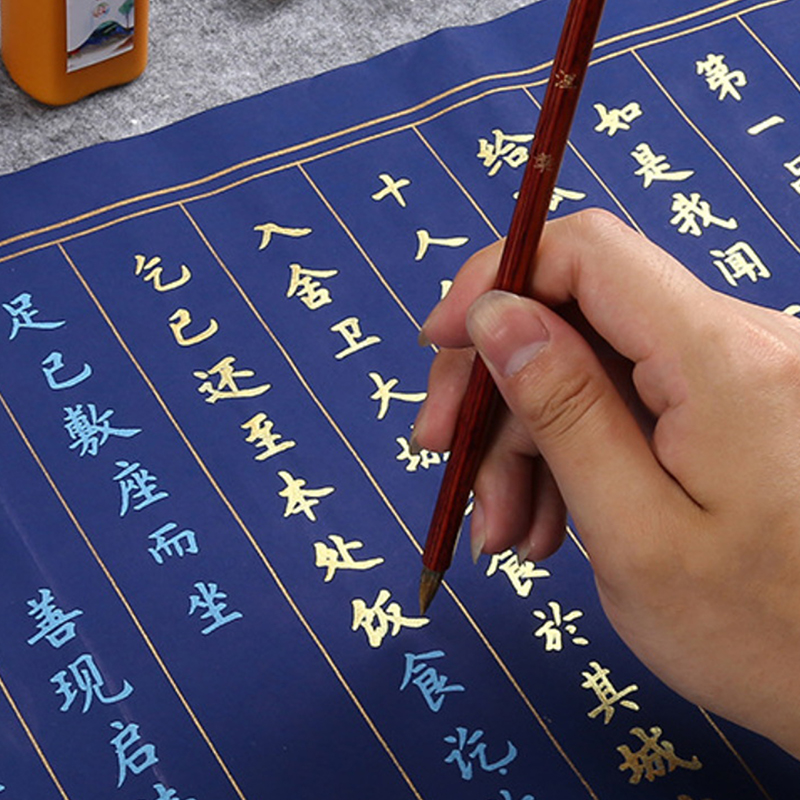 第一
如是我闻
给
十人
入舍卫大城食於其城
乞已还至本处饭食讫
足已敷座而坐
善现启